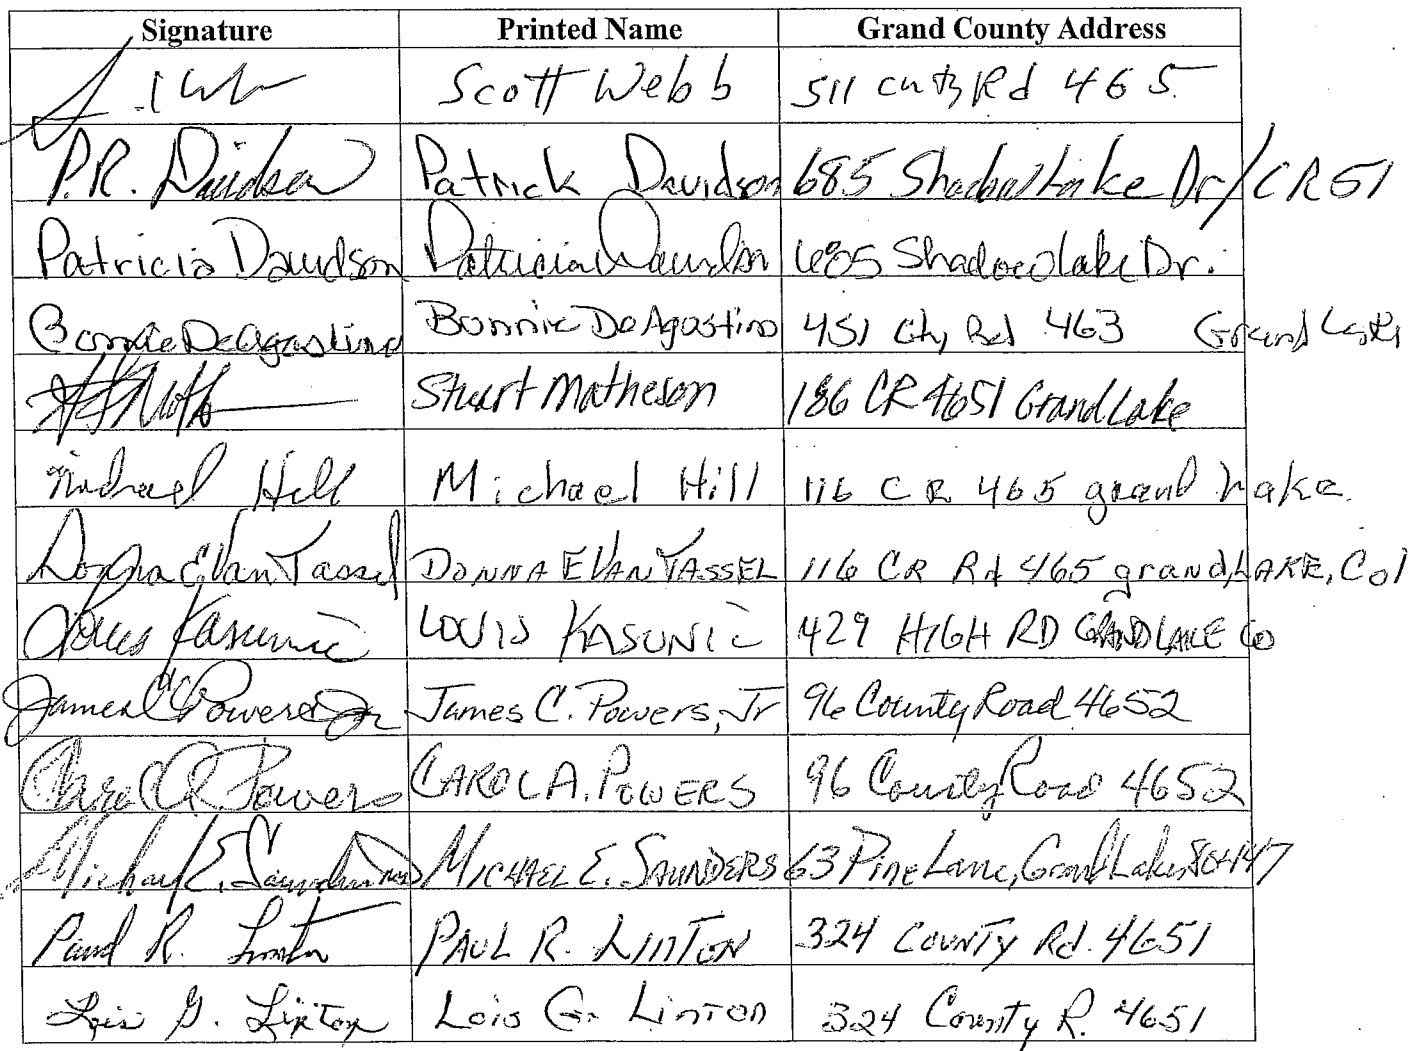 Signature Printed Name Grand County Address
Scott Webb 511 Cnty Rd 465
P.R. Davidson Patrick Davidson 685 Shadow Lake Dr/CR 51
Patricia Davidson Patricia Davidson 685 Shadow Lake Dr.
Bonnie DeAgostino Bonnie DeAgostino 451 Cty Rd 463 Grand Lake
Stuart Matheson 186 CR 4651 Grand Lake
Michael Hill Michael Hill 116 CR 465 grand Lake.
Donna E Van Tassel DONNA E VAN TASSEL 116 CR Rd 465 grand LAKE, Col
Louis Kasunic LOUIS KASUNIC 429 HIGH RD GRAND LAKE CO
James C Powers Jr James C. Powers, Jr 96 County Road 4652
Carol A Powers CAROL A. POWERS 96 County Road 4652
Michael E. Saunders MICHAEL E. SAUNDERS 63 Pine Lane, Grand Lake, 80447
Paul R. Linton PAUL R. LINTON 324 COUNTY Rd. 4651
Lois G. Linton Lois G. Linton 324 County R. 4651